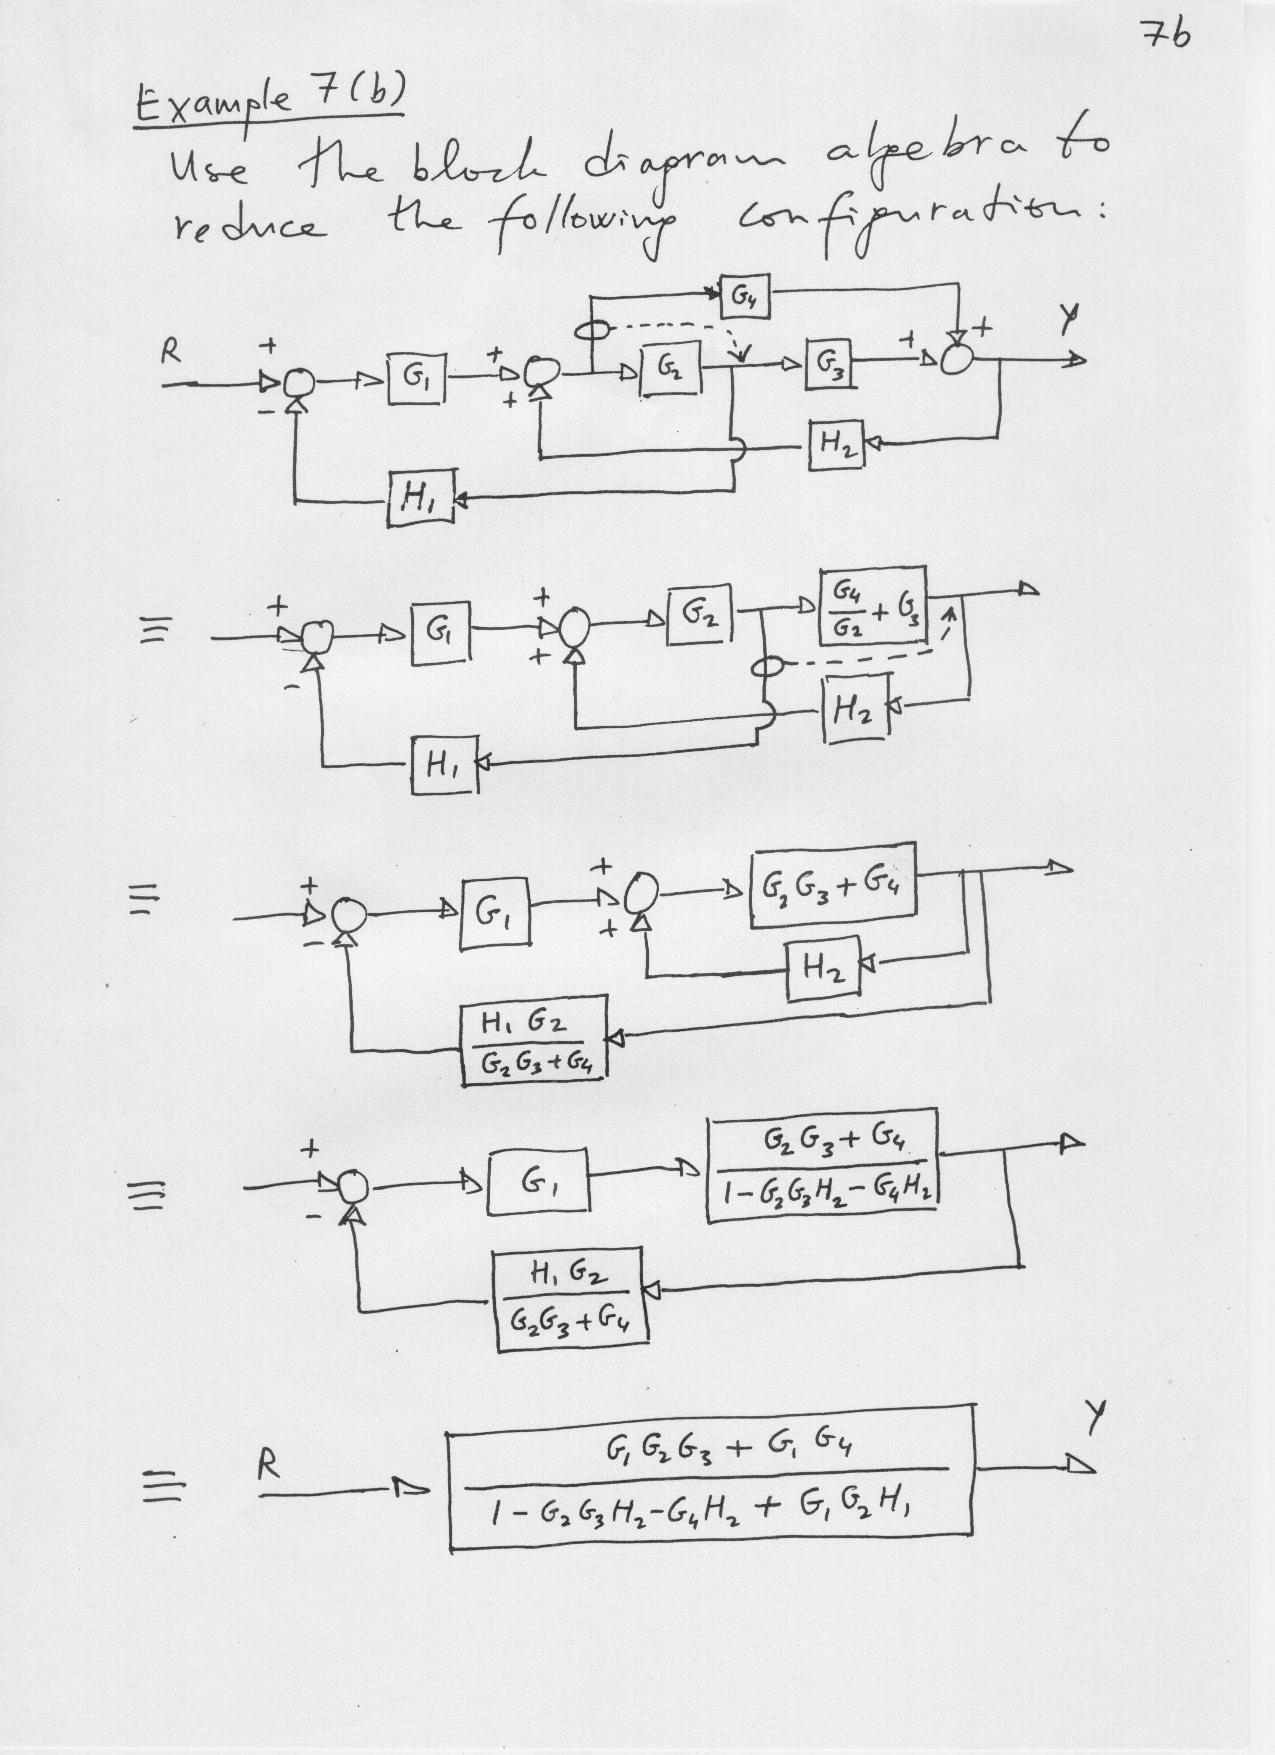 7b
Example 7(b)
Use the block diagram algebra to
reduce the following configuration:
G₄
R + − G₁ + + G₂ G₃ + + Y
H₂
H₁
≡ + − G₁ + + G₂ G₄/G₂ + G₃
H₂
H₁
≡ + − G₁ + + G₂G₃ + G₄
H₂
H₁ G₂
G₂G₃ + G₄
≡ + − G₁ G₂G₃ + G₄
1 − G₂G₃H₂ − G₄H₂
H₁ G₂
G₂G₃ + G₄
≡ R G₁G₂G₃ + G₁ G₄ Y
1 − G₂G₃H₂ − G₄H₂ + G₁G₂H₁